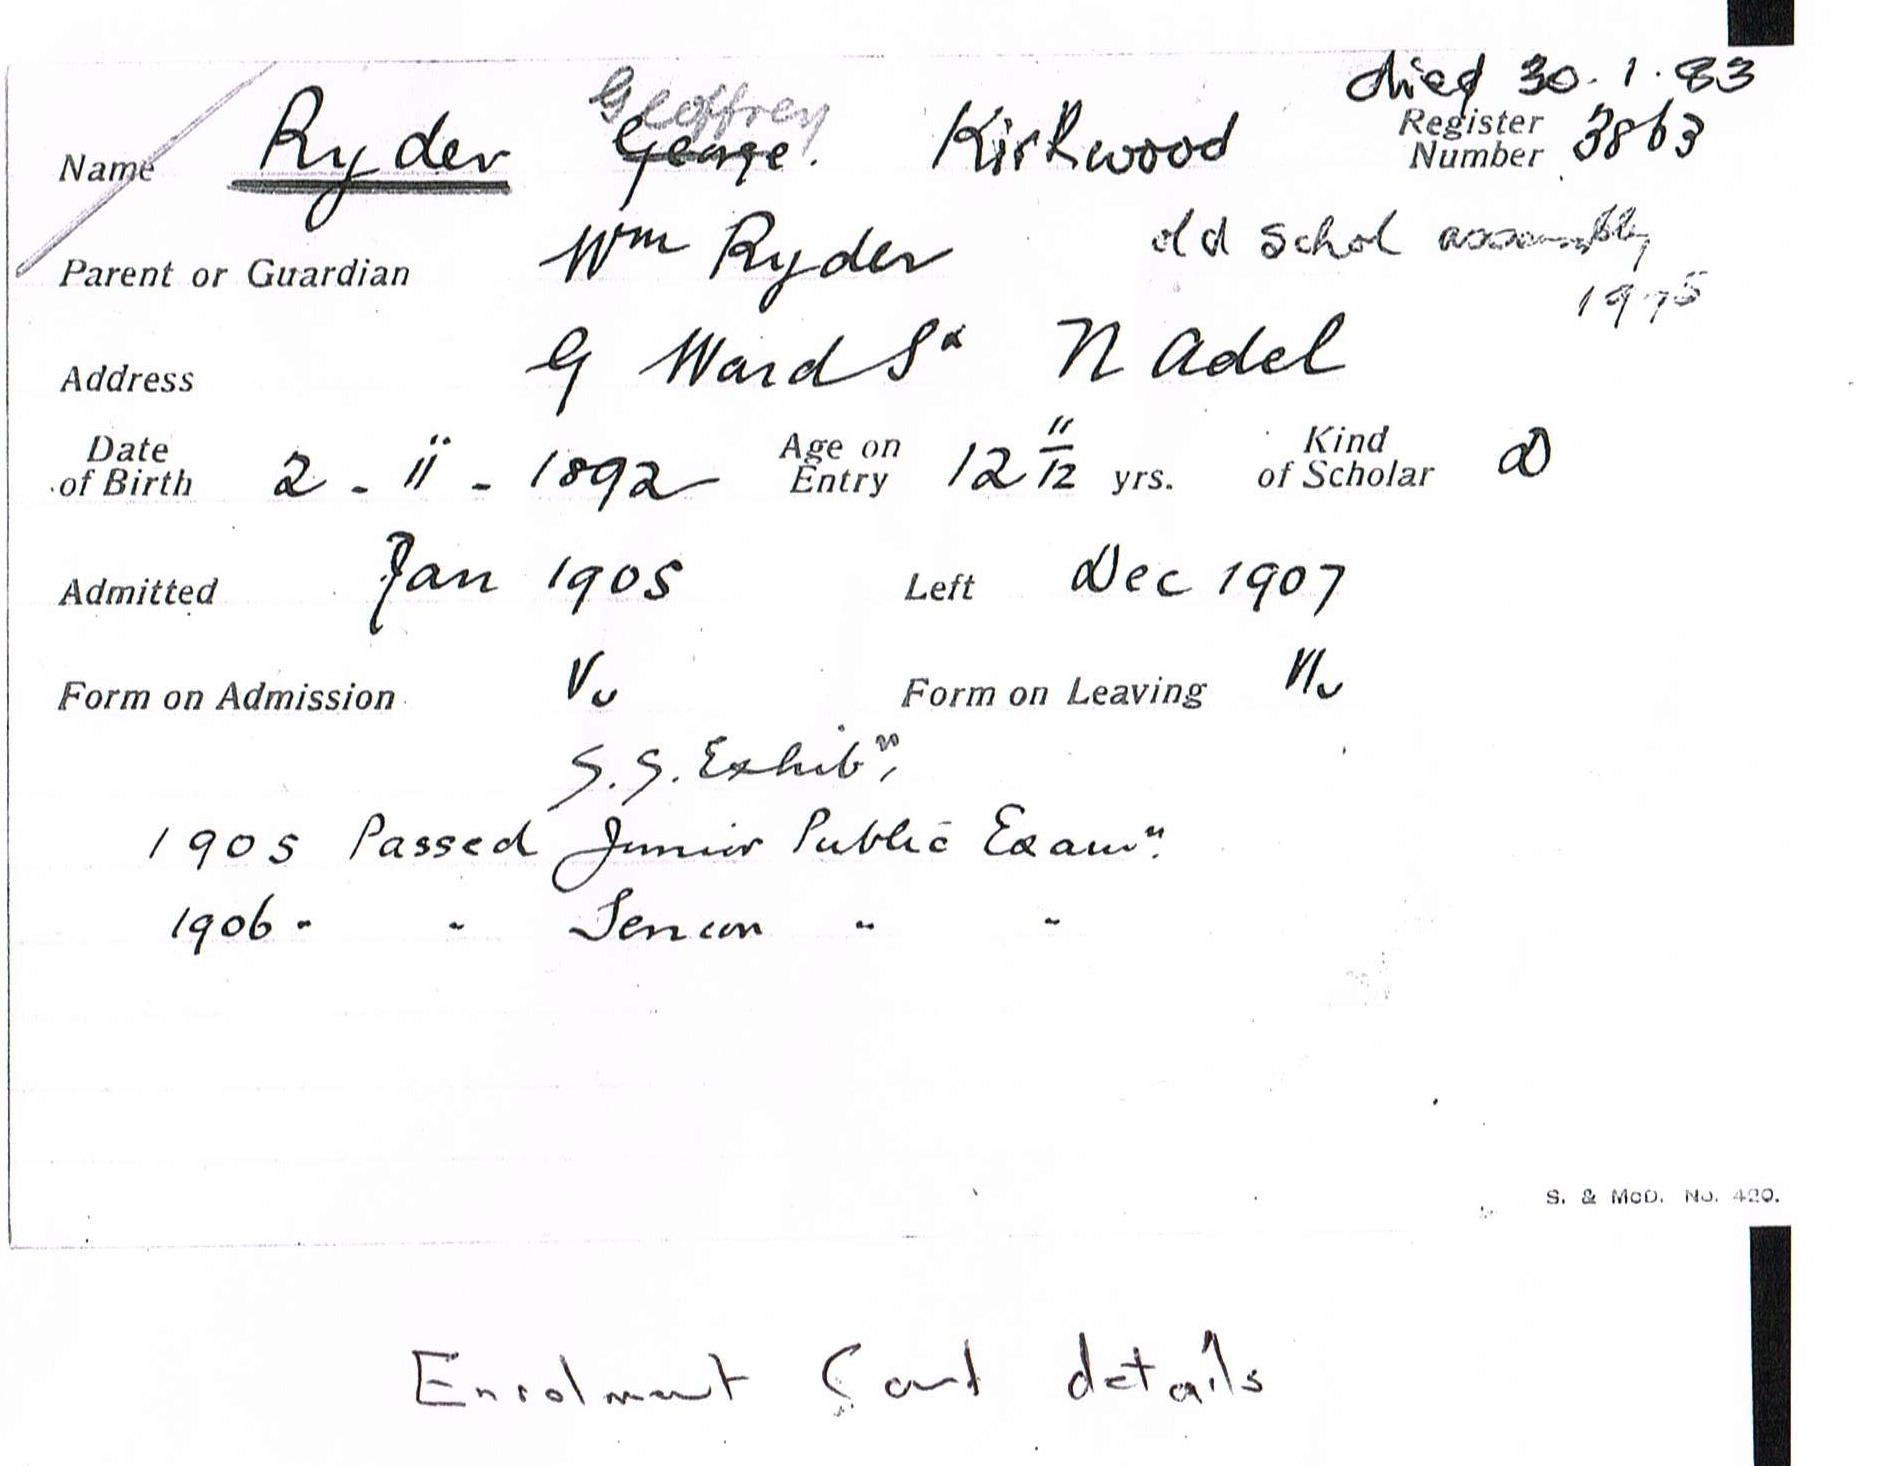 died 30.1.83
Geoffrey
Name Ryder George. Kirkwood Register Number 3863
Parent or Guardian Wm Ryder old schol assembly
1975
Address 9 Ward St N Adel
Date of Birth 2 - 11 - 1892 Age on Entry 12 11/12 yrs. Kind of Scholar D
Admitted Jan 1905 Left Dec 1907
Form on Admission Vu Form on Leaving VIu
S.S. Exhibn,
1905 Passed Junior Public Examn.
1906 " " Senior " "
S. & McD. No. 420.
Enrolment Card details